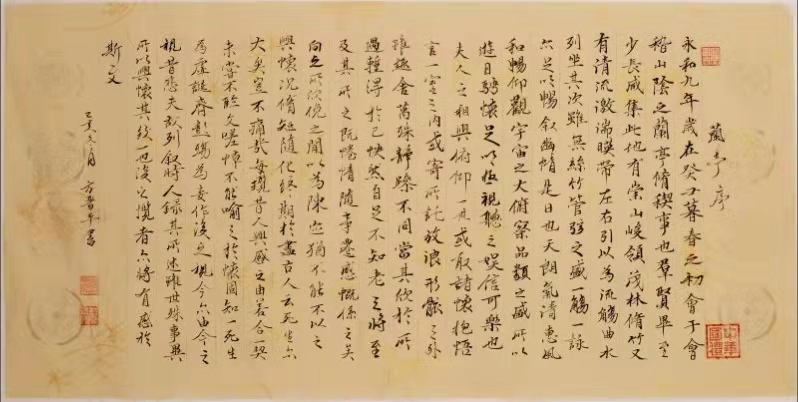 蘭亭序
永和九年歲在癸丑暮春之初會于會
稽山陰之蘭亭脩稧事也羣賢畢至
少長咸集此地有崇山峻領茂林脩竹又
有清流激湍暎帶左右引以為流觴曲水
列坐其次雖無絲竹管弦之盛一觴一詠
亦足以暢叙幽情是日也天朗氣清惠風
和暢仰觀宇宙之大俯察品類之盛所以
遊目騁懷足以極視聽之娛信可樂也
夫人之相與俯仰一世或取諸懷抱悟
言一室之內或寄所託放浪形骸之外
雖趣舍萬殊靜躁不同當其欣於所
遇暫得於己快然自足不知老之將至
及其所之既惓情隨事遷感慨係之矣
向之所欣俛之間以為陳迹猶不能不以之
興懷況脩短隨化終期於盡古人云死生亦
大矣豈不痛哉每攬昔人興感之由若合一契
未嘗不臨文嗟悼不能喻之於懷固知一死生
為虛誕齊彭殤為妄作後之視今亦由今之
視昔悲夫故列叙時人錄其所述雖世殊事異
所以興懷其致一也後之攬者亦將有感於
斯文